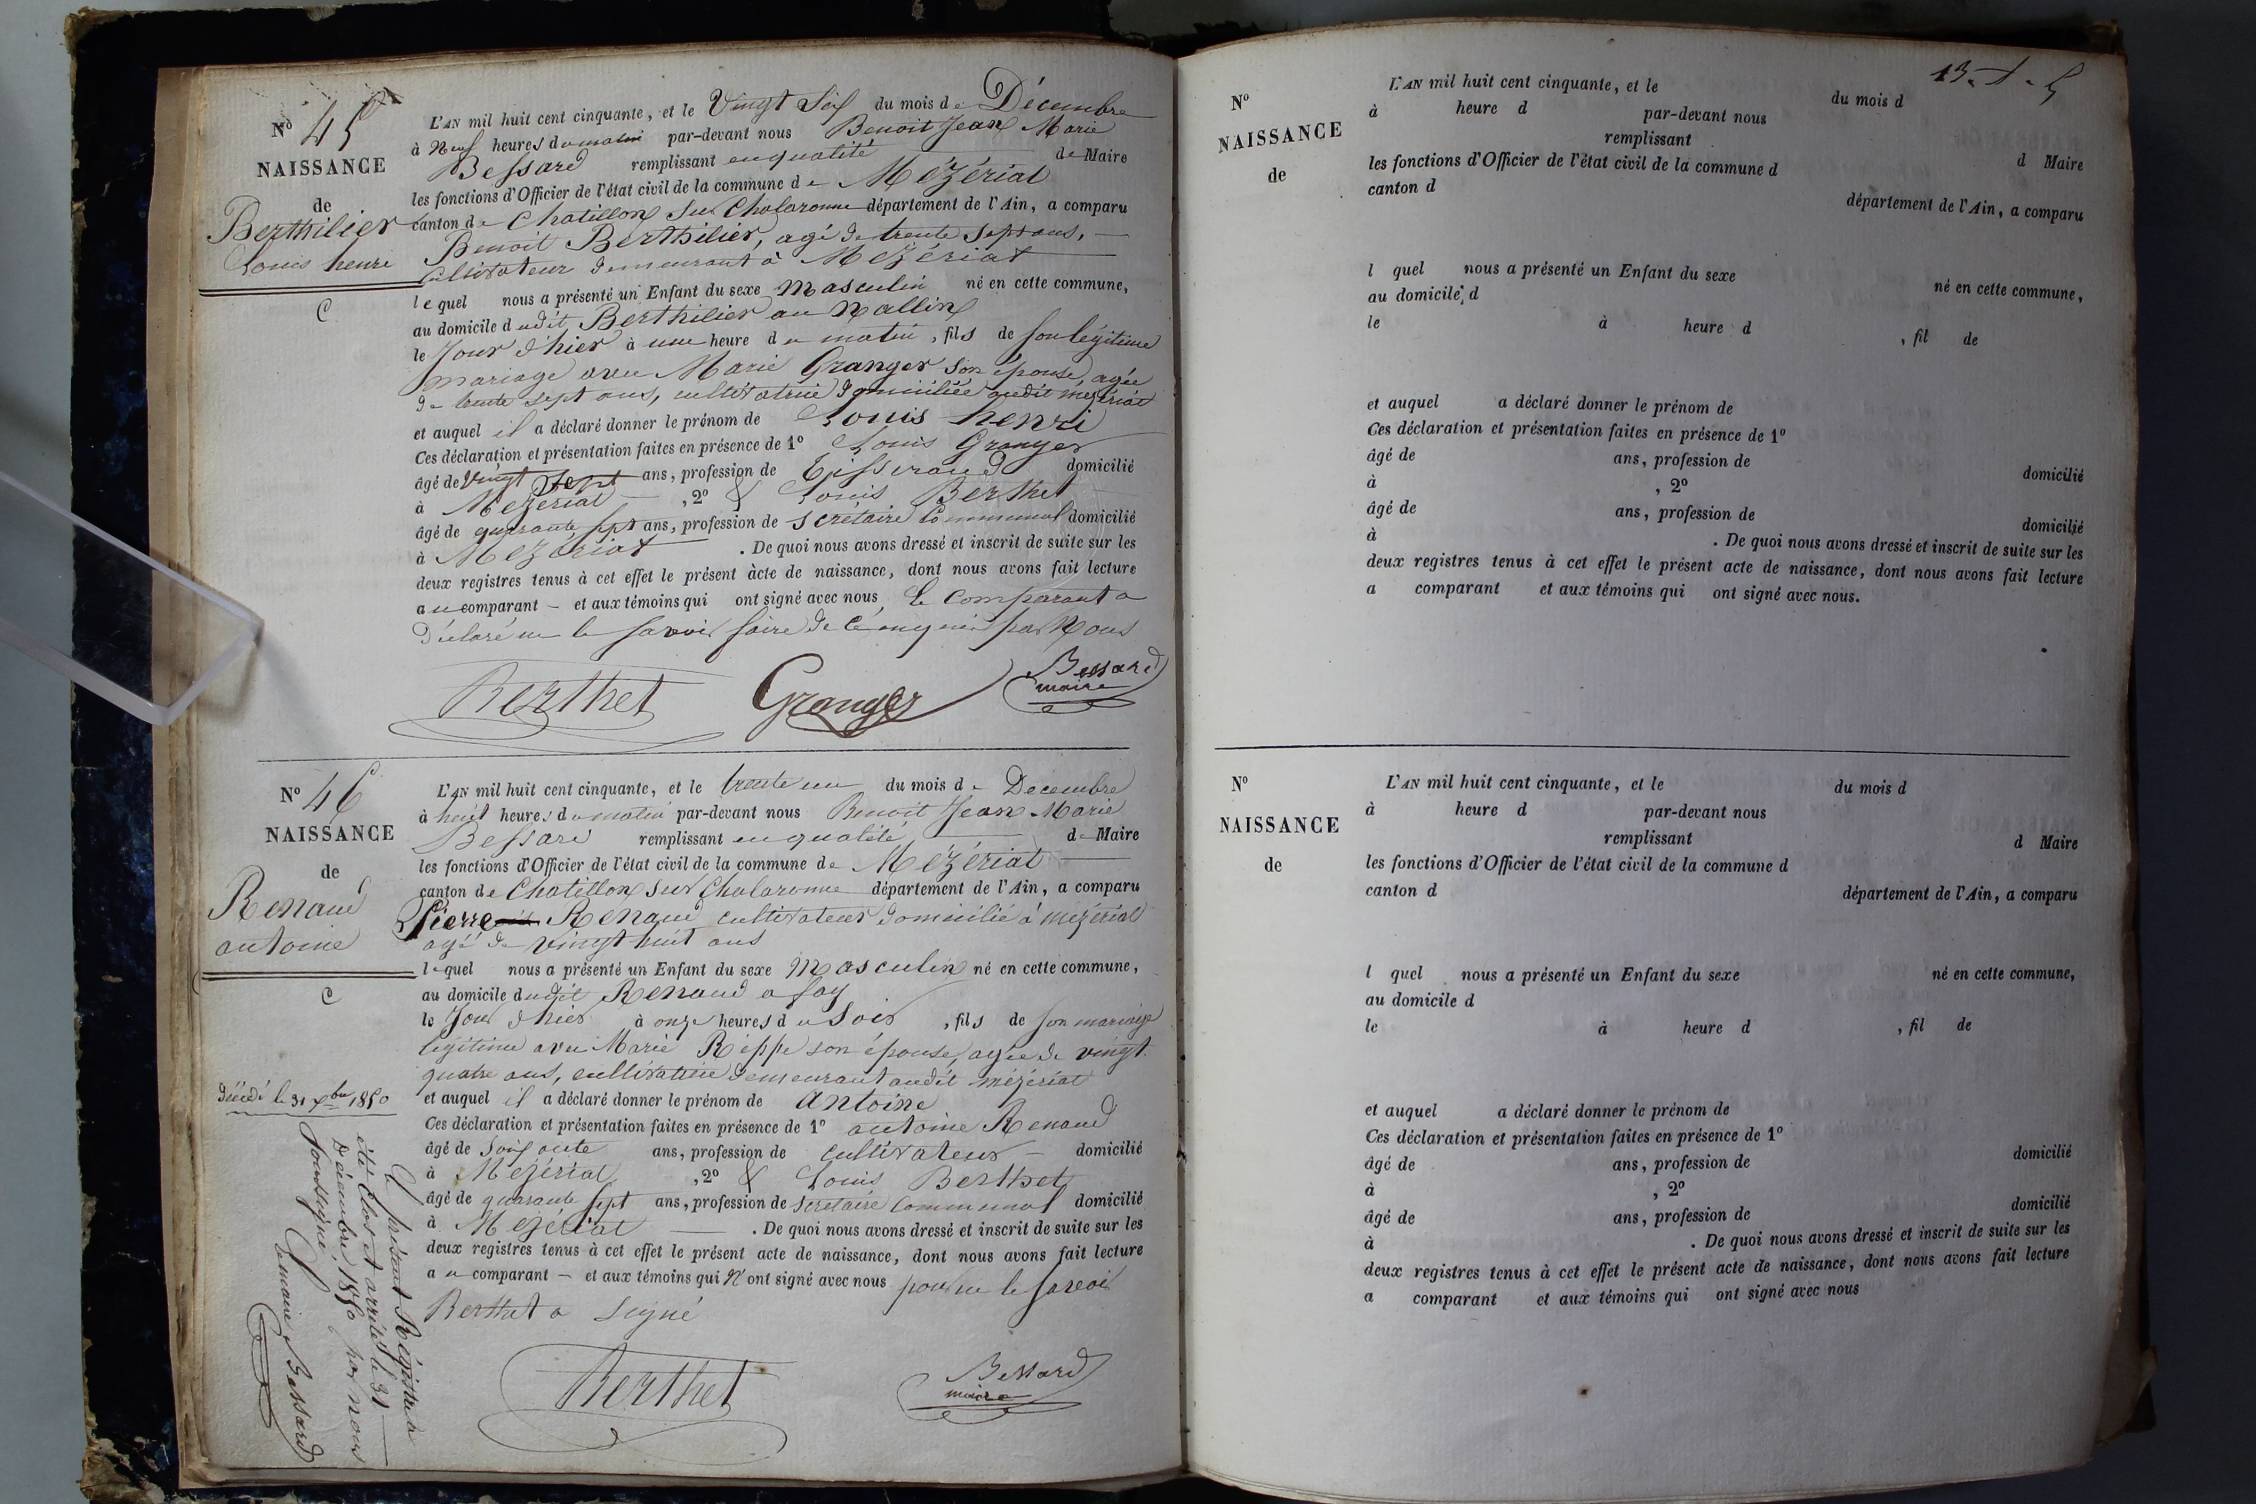 N° 45
NAISSANCE
de
Berthilier
Louis henri
C
L'AN mil huit cent cinquante, et le Vingt Six du mois de Décembre
à Neuf heures du matin par-devant nous Benoit Jean Marie
Bessard remplissant en qualité de Maire
les fonctions d'Officier de l'état civil de la commune de Mézériat
canton de Chatillon sur Chalaronne département de l'Ain, a comparu
Benoit Berthilier, agé de trente sept ans,
Cultivateur demeurant à Mézériat
lequel nous a présenté un Enfant du sexe Masculin né en cette commune,
au domicile dudit Berthilier au
le Jour d'hier à une heure du matin, fils de son légitime
mariage avec Marie Granger son épouse, agée
de trente sept ans, cultivatrice domiciliée audit mézériat
et auquel il a déclaré donner le prénom de Louis henri
Ces déclaration et présentation faites en présence de 1° Louis Granger
âgé de vingt sept ans, profession de Tisserand domicilié
à Mézériat , 2° & Louis Berthet
âgé de quarante sept ans, profession de Secrétaire Communal domicilié
à Mézériat . De quoi nous avons dressé et inscrit de suite sur les
deux registres tenus à cet effet le présent àcte de naissance, dont nous avons fait lecture
au comparant – et aux témoins qui ont signé avec nous Le comparant a
déclaré ne le savoir faire de ce enquis par Nous
Berthet Granger Bessard
maire
N° 46
NAISSANCE
de
Renaud
antoine
C
L'AN mil huit cent cinquante, et le trente un du mois de Décembre
à huit heures du matin par-devant nous Benoit Jean Marie
Bessard remplissant en qualité de Maire
les fonctions d'Officier de l'état civil de la commune de Mézériat
canton de Chatillon sur Chalaronne département de l'Ain, a comparu
Pierre Renaud cultivateur domicilié à mézériat
agé de vingt huit ans
lequel nous a présenté un Enfant du sexe Masculin né en cette commune,
au domicile dudit Renaud a fay
le Jour d'hier à onze heures du Soir , fils de son mariage
légitime avec Marie Réppe son épouse, agée de vingt
quatre ans, cultivatrice demeurant audit mézériat
et auquel il a déclaré donner le prénom de antoine
Ces déclaration et présentation faites en présence de 1° antoine Renaud
âgé de Soixante ans, profession de cultivateur domicilié
à Mézériat , 2° & Louis Berthet
âgé de quarante sept ans, profession de Secrétaire communal domicilié
à Mézériat . De quoi nous avons dressé et inscrit de suite sur les
deux registres tenus à cet effet le présent acte de naissance, dont nous avons fait lecture
au comparant – et aux témoins qui N'ont signé avec nous pour ne le savoir
Berthet a Signé
Berthet Bessard
maire
Décédé le 31 Xbre 1850
Le présent Régistre a
été clos et arrêté le 31
Décembre 1850 par nous
Soussigné
Le maire Bessard
13-1-5
N°
NAISSANCE
de
L'AN mil huit cent cinquante, et le du mois d
à heure d par-devant nous
remplissant d Maire
les fonctions d'Officier de l'état civil de la commune d
canton d département de l'Ain, a comparu
l quel nous a présenté un Enfant du sexe né en cette commune,
au domicile d
le à heure d , fil de
et auquel a déclaré donner le prénom de
Ces déclaration et présentation faites en présence de 1°
âgé de ans, profession de domicilié
à , 2°
âgé de ans, profession de domicilié
à . De quoi nous avons dressé et inscrit de suite sur les
deux registres tenus à cet effet le présent acte de naissance, dont nous avons fait lecture
a comparant et aux témoins qui ont signé avec nous.
N°
NAISSANCE
de
L'AN mil huit cent cinquante, et le du mois d
à heure d par-devant nous
remplissant d Maire
les fonctions d'Officier de l'état civil de la commune d
canton d département de l'Ain, a comparu
l quel nous a présenté un Enfant du sexe né en cette commune,
au domicile d
le à heure d , fil de
et auquel a déclaré donner le prénom de
Ces déclaration et présentation faites en présence de 1°
âgé de ans, profession de domicilié
à , 2°
âgé de ans, profession de domicilié
à . De quoi nous avons dressé et inscrit de suite sur les
deux registres tenus à cet effet le présent acte de naissance, dont nous avons fait lecture
a comparant et aux témoins qui ont signé avec nous